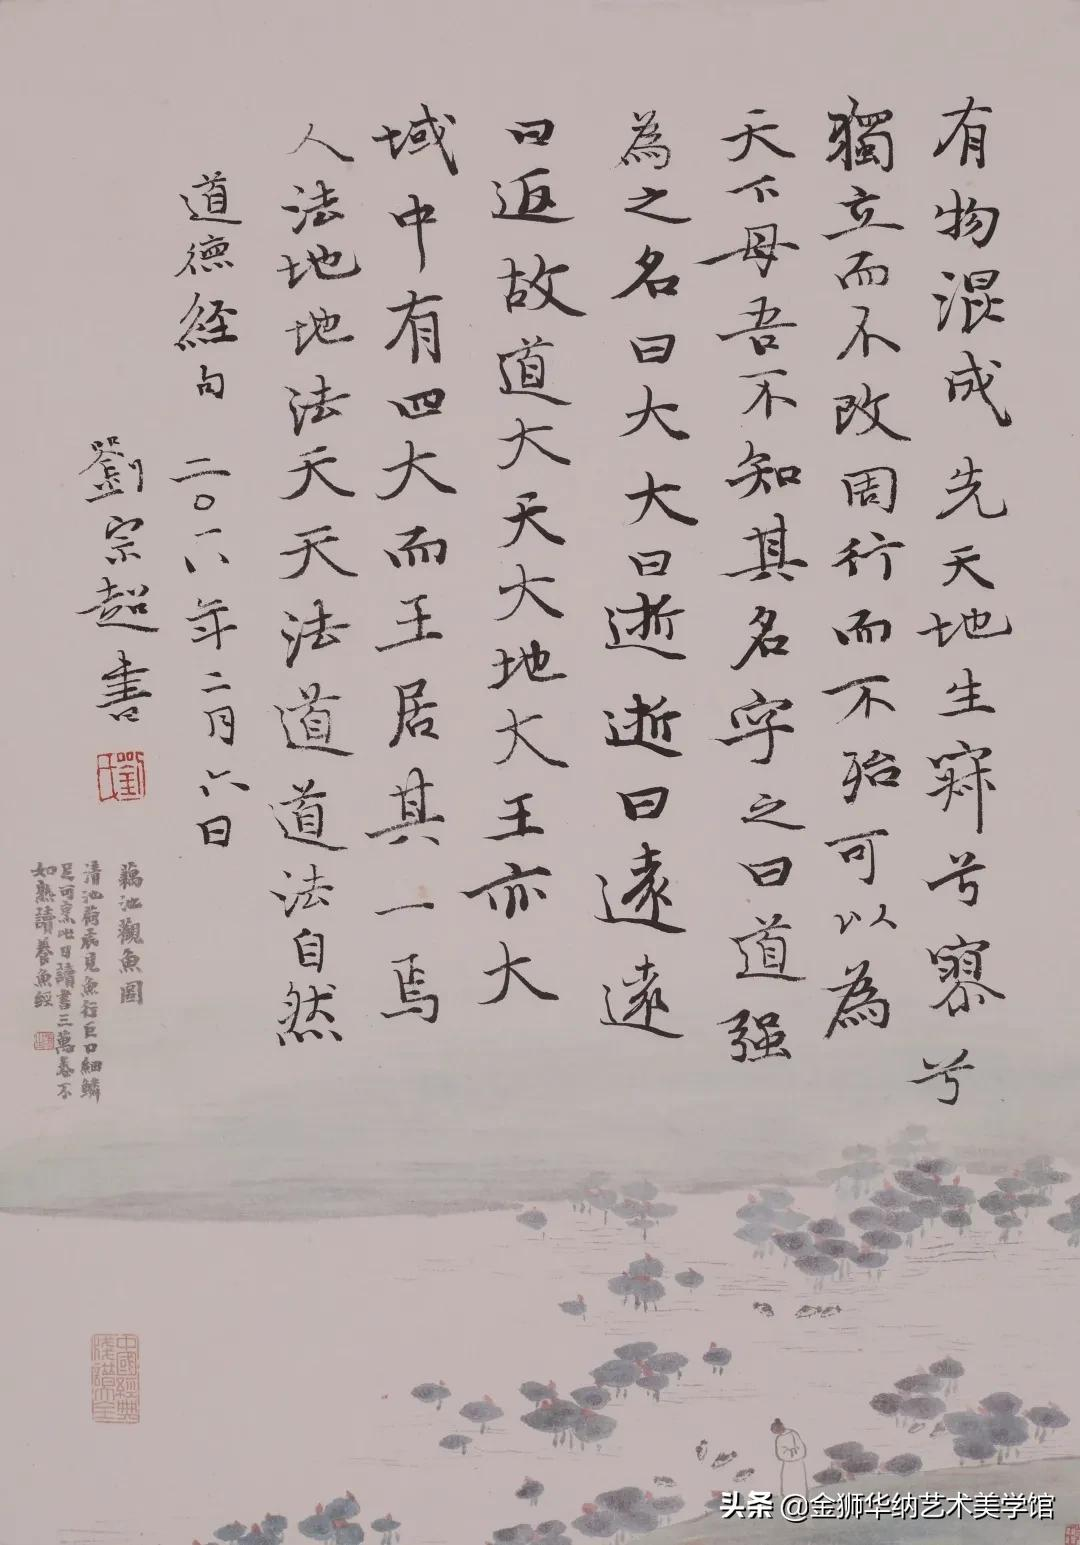 有物混成先天地生寂兮寥兮
獨立而不改周行而不殆可以為
天下母吾不知其名字之曰道强
為之名曰大大曰逝逝曰遠遠
曰返故道大天大地大王亦大
域中有四大而王居其一焉
人法地地法天天法道道法自然
道德経句 二〇一八年二月六日
劉宗超書
劉氏
藕池觀魚圖
清池荷底見魚行巨口細鱗
足可烹此日讀書三萬卷不
如熟讀養魚經
中國經典
头条 @金狮华纳艺术美学馆